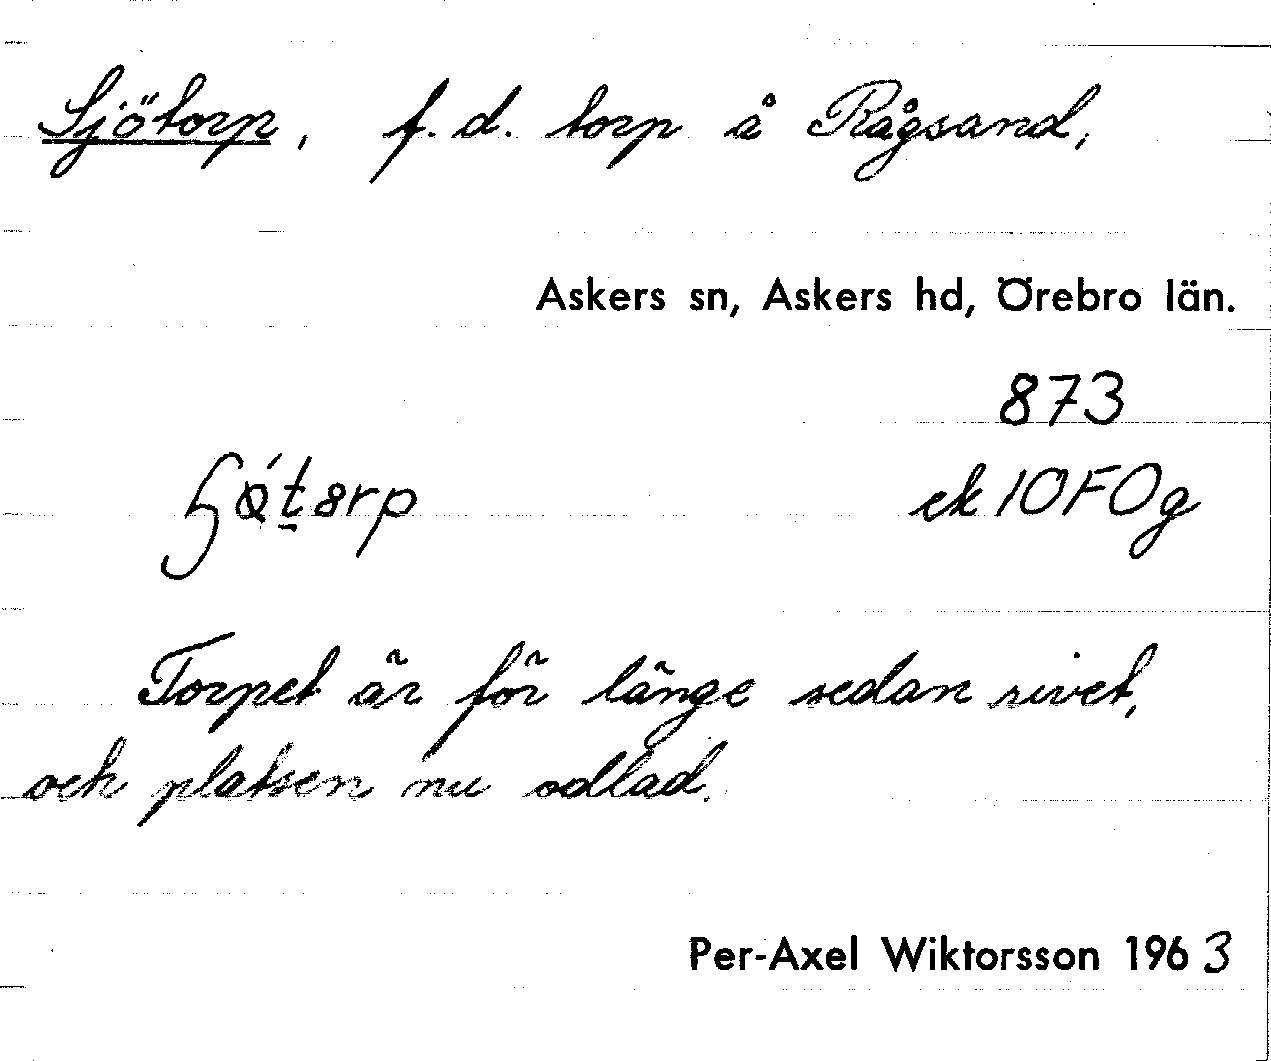 Sjötorp, f.d. torp å Rågsand,
Askers sn, Askers hd, Örebro län.
873
ek 10F0g
Torpet är för länge sedan rivet,
och platsen nu odlad.
Per-Axel Wiktorsson 1963